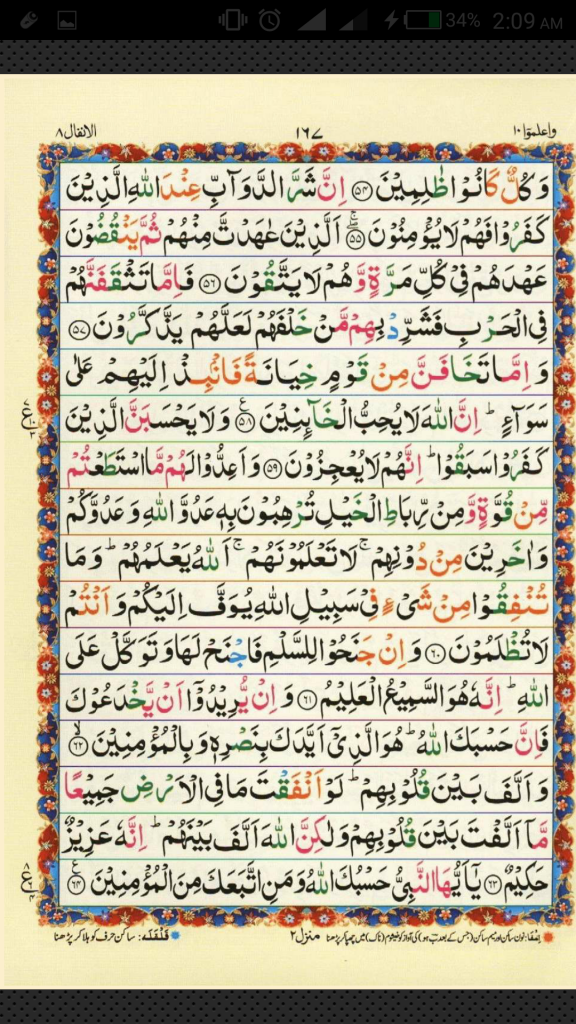 34% 2:09 AM
واعلموا ١٠ ١٦٧ الانفال ٨
وَكُلٌّ كَانُوْا ظٰلِمِيْنَ ﴿٥٤﴾ اِنَّ شَرَّ الدَّوَآبِّ عِنْدَ اللّٰهِ الَّذِيْنَ
كَفَرُوْا فَهُمْ لَا يُؤْمِنُوْنَ ﴿٥٥﴾ اَلَّذِيْنَ عٰهَدْتَّ مِنْهُمْ ثُمَّ يَنْقُضُوْنَ
عَهْدَهُمْ فِيْ كُلِّ مَرَّةٍ وَّهُمْ لَا يَتَّقُوْنَ ﴿٥٦﴾ فَاِمَّا تَثْقَفَنَّهُمْ
فِي الْحَرْبِ فَشَرِّدْ بِهِمْ مَّنْ خَلْفَهُمْ لَعَلَّهُمْ يَذَّكَّرُوْنَ ﴿٥٧﴾
وَاِمَّا تَخَافَنَّ مِنْ قَوْمٍ خِيَانَةً فَانْۢبِذْ اِلَيْهِمْ عَلٰى
سَوَآءٍ ؕ اِنَّ اللّٰهَ لَا يُحِبُّ الْخَآئِنِيْنَ ﴿٥٨﴾ وَلَا يَحْسَبَنَّ الَّذِيْنَ
كَفَرُوْا سَبَقُوْا ؕ اِنَّهُمْ لَا يُعْجِزُوْنَ ﴿٥٩﴾ وَاَعِدُّوْا لَهُمْ مَّا اسْتَطَعْتُمْ
مِّنْ قُوَّةٍ وَّمِنْ رِّبَاطِ الْخَيْلِ تُرْهِبُوْنَ بِهٖ عَدُوَّ اللّٰهِ وَعَدُوَّكُمْ
وَاٰخَرِيْنَ مِنْ دُوْنِهِمْ ۚ لَا تَعْلَمُوْنَهُمْ ۚ اَللّٰهُ يَعْلَمُهُمْ ؕ وَمَا
تُنْفِقُوْا مِنْ شَيْءٍ فِيْ سَبِيْلِ اللّٰهِ يُوَفَّ اِلَيْكُمْ وَاَنْتُمْ
لَا تُظْلَمُوْنَ ﴿٦٠﴾ وَاِنْ جَنَحُوْا لِلسَّلْمِ فَاجْنَحْ لَهَا وَتَوَكَّلْ عَلَى
اللّٰهِ ؕ اِنَّهٗ هُوَ السَّمِيْعُ الْعَلِيْمُ ﴿٦١﴾ وَاِنْ يُّرِيْدُوْۤا اَنْ يَّخْدَعُوْكَ
فَاِنَّ حَسْبَكَ اللّٰهُ ؕ هُوَ الَّذِيْۤ اَيَّدَكَ بِنَصْرِهٖ وَبِالْمُؤْمِنِيْنَ ﴿٦٢﴾
وَاَلَّفَ بَيْنَ قُلُوْبِهِمْ ؕ لَوْ اَنْفَقْتَ مَا فِي الْاَرْضِ جَمِيْعًا
مَّاۤ اَلَّفْتَ بَيْنَ قُلُوْبِهِمْ وَلٰكِنَّ اللّٰهَ اَلَّفَ بَيْنَهُمْ ؕ اِنَّهٗ عَزِيْزٌ
حَكِيْمٌ ﴿٦٣﴾ يٰۤاَيُّهَا النَّبِيُّ حَسْبُكَ اللّٰهُ وَمَنِ اتَّبَعَكَ مِنَ الْمُؤْمِنِيْنَ ﴿٦٤﴾
منزل ٢ قلقلہ: ساکن حرف کو ہلا کر پڑھنا